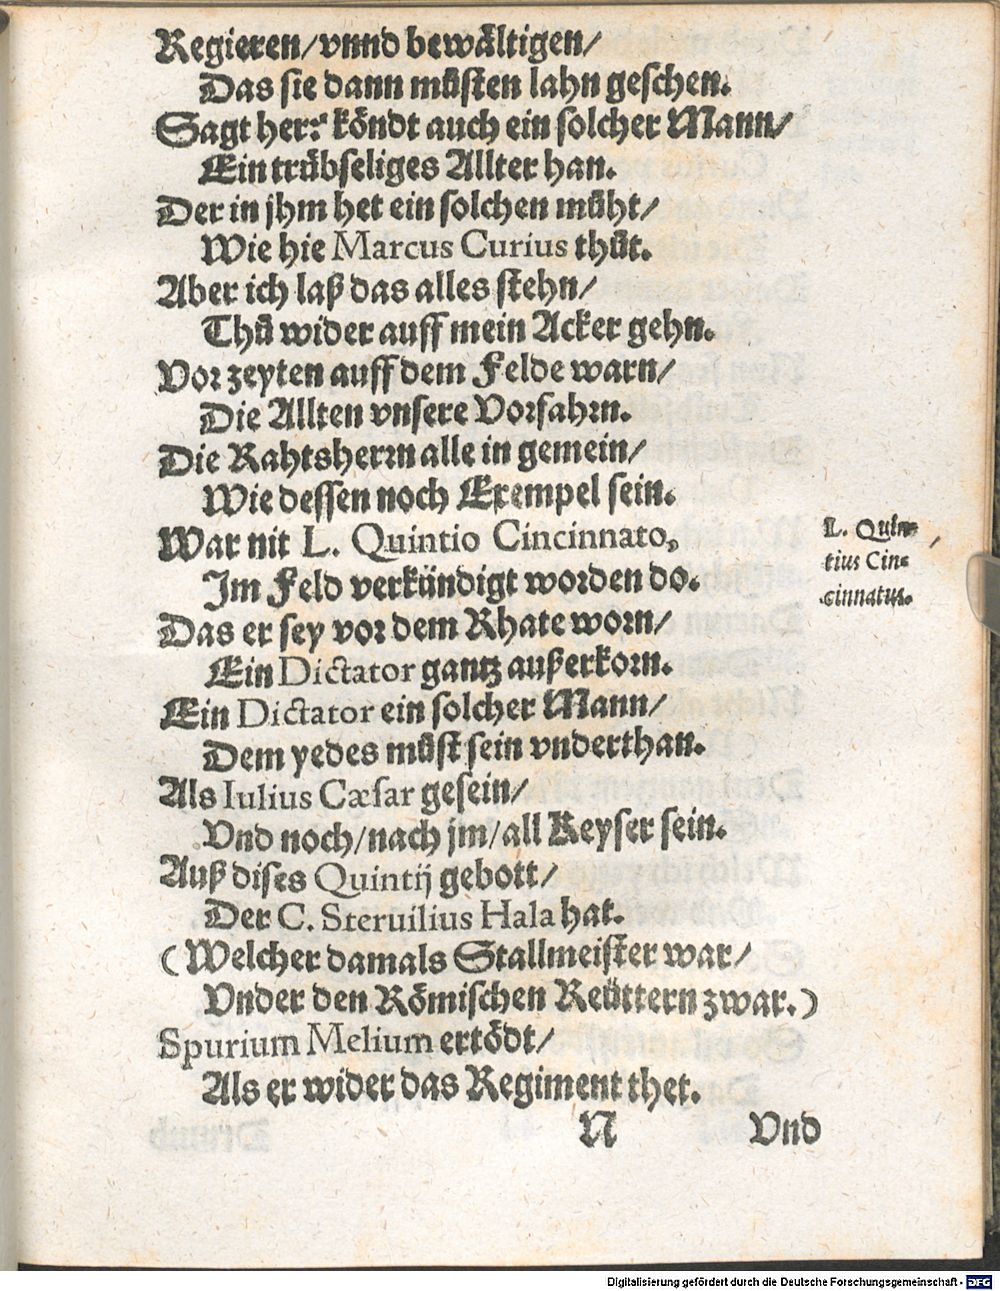 Regieren/vnnd bewåltigen/
Das sie dann můsten lahn geschen.
Sagt herꝛ köndt auch ein solcher Mann/
Ein trůbseliges Allter han.
Der in jhm het ein solchen můht/
Wie hie Marcus Curius thůt.
Aber ich laß das alles stehn/
Thů wider auff mein Acker gehn.
Voꝛ zeyten auff dem Felde warn/
Die Allten vnsere Voꝛfahꝛn.
Die Rahtsherꝛn alle in gemein/
Wie dessen noch Exempel sein.
War nit L. Quintio Cincinnato,
L. Quin-
tius Cin-
cinnatus.
Im Feld verkündigt woꝛden do.
Das er sey voꝛ dem Rhate woꝛn/
Ein Dictator gantz außerkoꝛn.
Ein Dictator ein solcher Mann/
Dem yedes můst sein vnderthan.
Als Iulius Cæsar gesein/
Vnd noch/nach jm/all Keyser sein.
Auß dises Quintij gebott/
Der C. Steruilius Hala hat.
(Welcher damals Stallmeister war/
Vnder den Römischen Reüttern zwar.)
Spurium Melium ertödt/
Als er wider das Regiment thet.
N Vnd
Digitalisierung gefördert durch die Deutsche Forschungsgemeinschaft - DFG